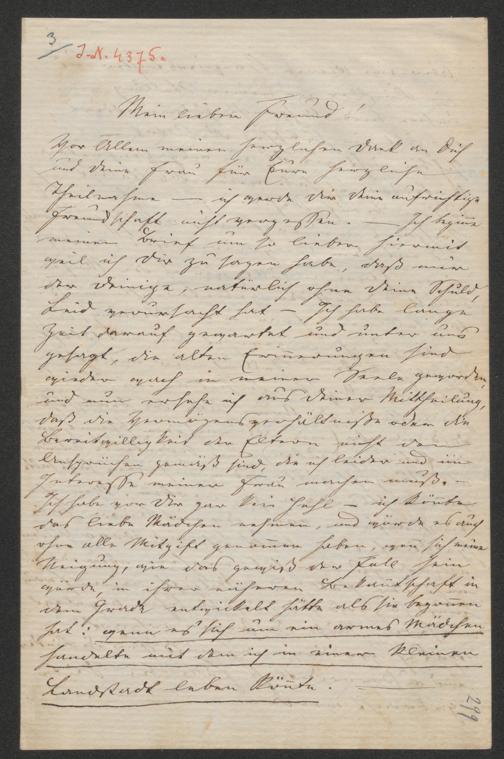 3
I.N. 4375.
Mein lieben Freund!
Vor Allem meinen herzlichen Dank an Dich
und Deine Frau für Eure herzliche
Theilnahme — ich werde Dir Deine aufrichtige
Freundschaft nicht vergessen. — Ich beginne
meinen Brief um so lieber hiermit
weil ich Dir zu sagen habe, daß mir
der Deinige, natürlich ohne Deine Schuld,
Leid verursacht hat — Ich habe lange
Zeit darauf gewartet und unter uns
gesagt, die alten Erinnerungen sind
wieder wach in meiner Seele geworden,
und nun ersehe ich aus Deiner Mittheilung,
daß die Vermögensverhältniße oder die
Bereitwilligkeit der Eltern nicht den
Ansprüchen gemäß sind, die ich leider und im
Interesse meiner Frau machen muß. —
Ich habe vor Dir gar kein Hehl — ich könnte
das liebe Mädchen nehmen, und würde es auch
ohne alle Mitgift genommen haben, wenn sich meine
Neigung, wie das gewiß der Fall sein
würde, in ihrer näheren Bekanntschaft in
dem Grade entwickelt hätte als sie begonnen
hat: wenn es sich um ein armes Mädchen
handelte mit dem ich in einem kleinen
Landstadt leben könnte. —
299